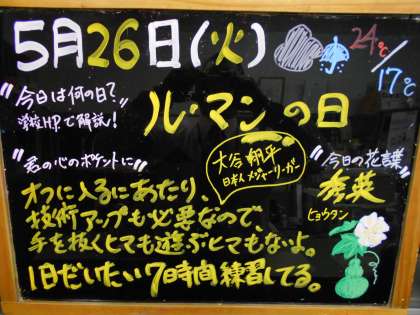 5月26日(火)
24℃/17℃
"今日は何の日?"
学校H.P.で解説!
ル・マンの日
"君の心のポケットに"
大谷翔平
日本人メジャーリーガー
オフに入るにあたり、
技術アップも必要なので、
手を抜くとても遊ぶとてもないよ。
1日だいたい7時間練習してる。
"今日の花言葉"
秀英
ヒョウタン